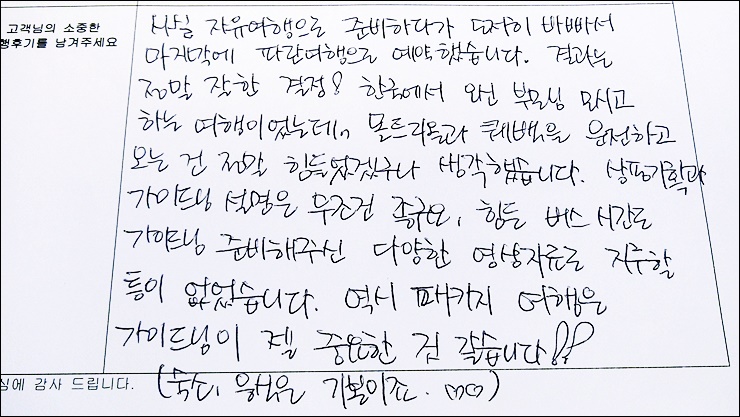 고객님의 소중한
행후기를 남겨주세요
사실 자유여행으로 준비하다가 도저히 바빠서
마지막에 파란여행으로 예약했습니다. 결과는
정말 잘한 결정! 한국에서 오신 부모님 모시고
하는 여행이었는데, 몬트리올과 퀘벡을 운전하고
오는 건 정말 힘들었겠구나 생각했습니다. 상품기획과
가이드님 설명은 무조건 좋구요, 힘든 버스 시간도
가이드님 준비해주신 다양한 영상자료로 지루할
틈이 없었습니다. 역시 패키지 여행은
가이드님이 젤 중요한 것 같습니다!!
심에 감사 드립니다.
(숙소, 음식은 기본이죠. ♡♡)